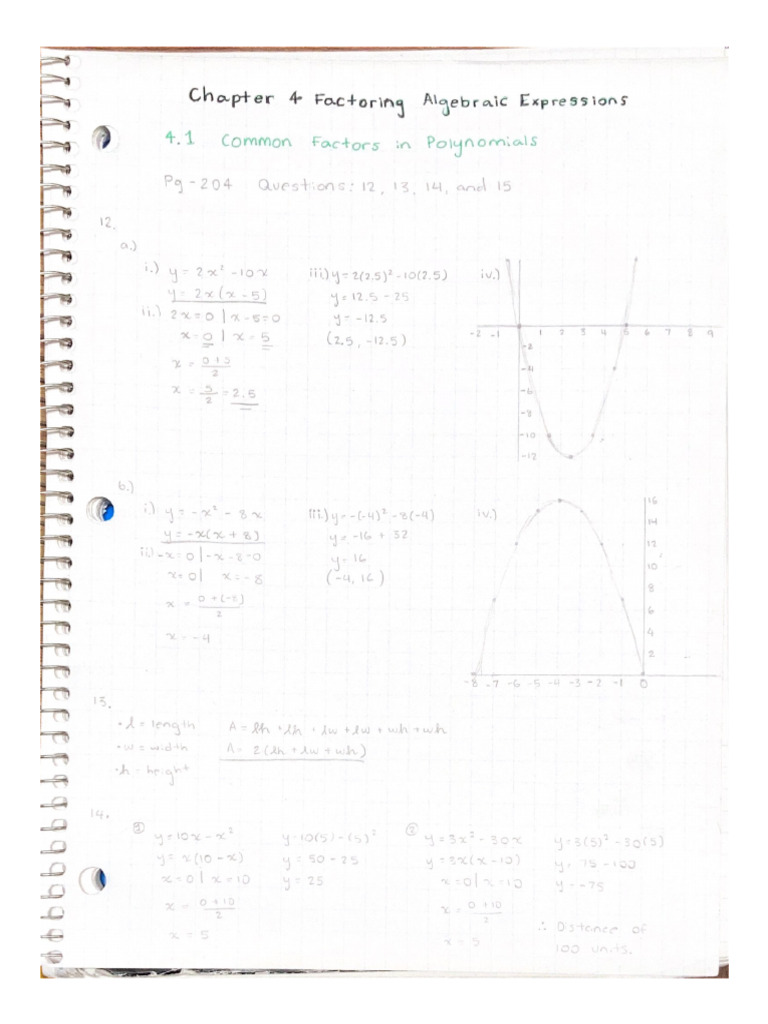 Chapter 4 Factoring Algebraic Expressions
4.1 Common Factors in Polynomials
Pg-204 Questions: 12, 13, 14, and 15
12.
a.)
i.) y = 2x² - 10x
y = 2x(x - 5)
ii.) 2x = 0 | x - 5 = 0
x = 0 | x = 5
x = 0+5/2
x = 5/2 = 2.5
iii) y = 2(2.5)² - 10(2.5)
y = 12.5 - 25
y = -12.5
(2.5, -12.5)
iv.)
-2 -1 1 2 3 4 5 6 7 8 9
-2
-4
-6
-8
-10
-12
b.)
i) y = -x² - 8x
y = -x(x + 8)
ii) -x = 0 | -x - 8 = 0
x = 0 | x = -8
x = 0 + (-8)/2
x = -4
iii.) y = -(-4)² - 8(-4)
y = -16 + 32
y = 16
(-4, 16)
iv.)
16
14
12
10
8
6
4
2
-8 -7 -6 -5 -4 -3 -2 -1 0
13.
• l = length
• w = width
• h = height
A = lh + lh + lw + lw + wh + wh
A = 2(lh + lw + wh)
14.
① y = 10x - x²
y = x(10 - x)
x = 0 | x = 10
x = 0 + 10/2
x = 5
y = 10(5) - (5)²
y = 50 - 25
y = 25
② y = 3x² - 30x
y = 3x(x - 10)
x = 0 | x = 10
x = 0 + 10/2
x = 5
y = 3(5)² - 30(5)
y = 75 - 100
y = -75
∴ Distance of
100 units.